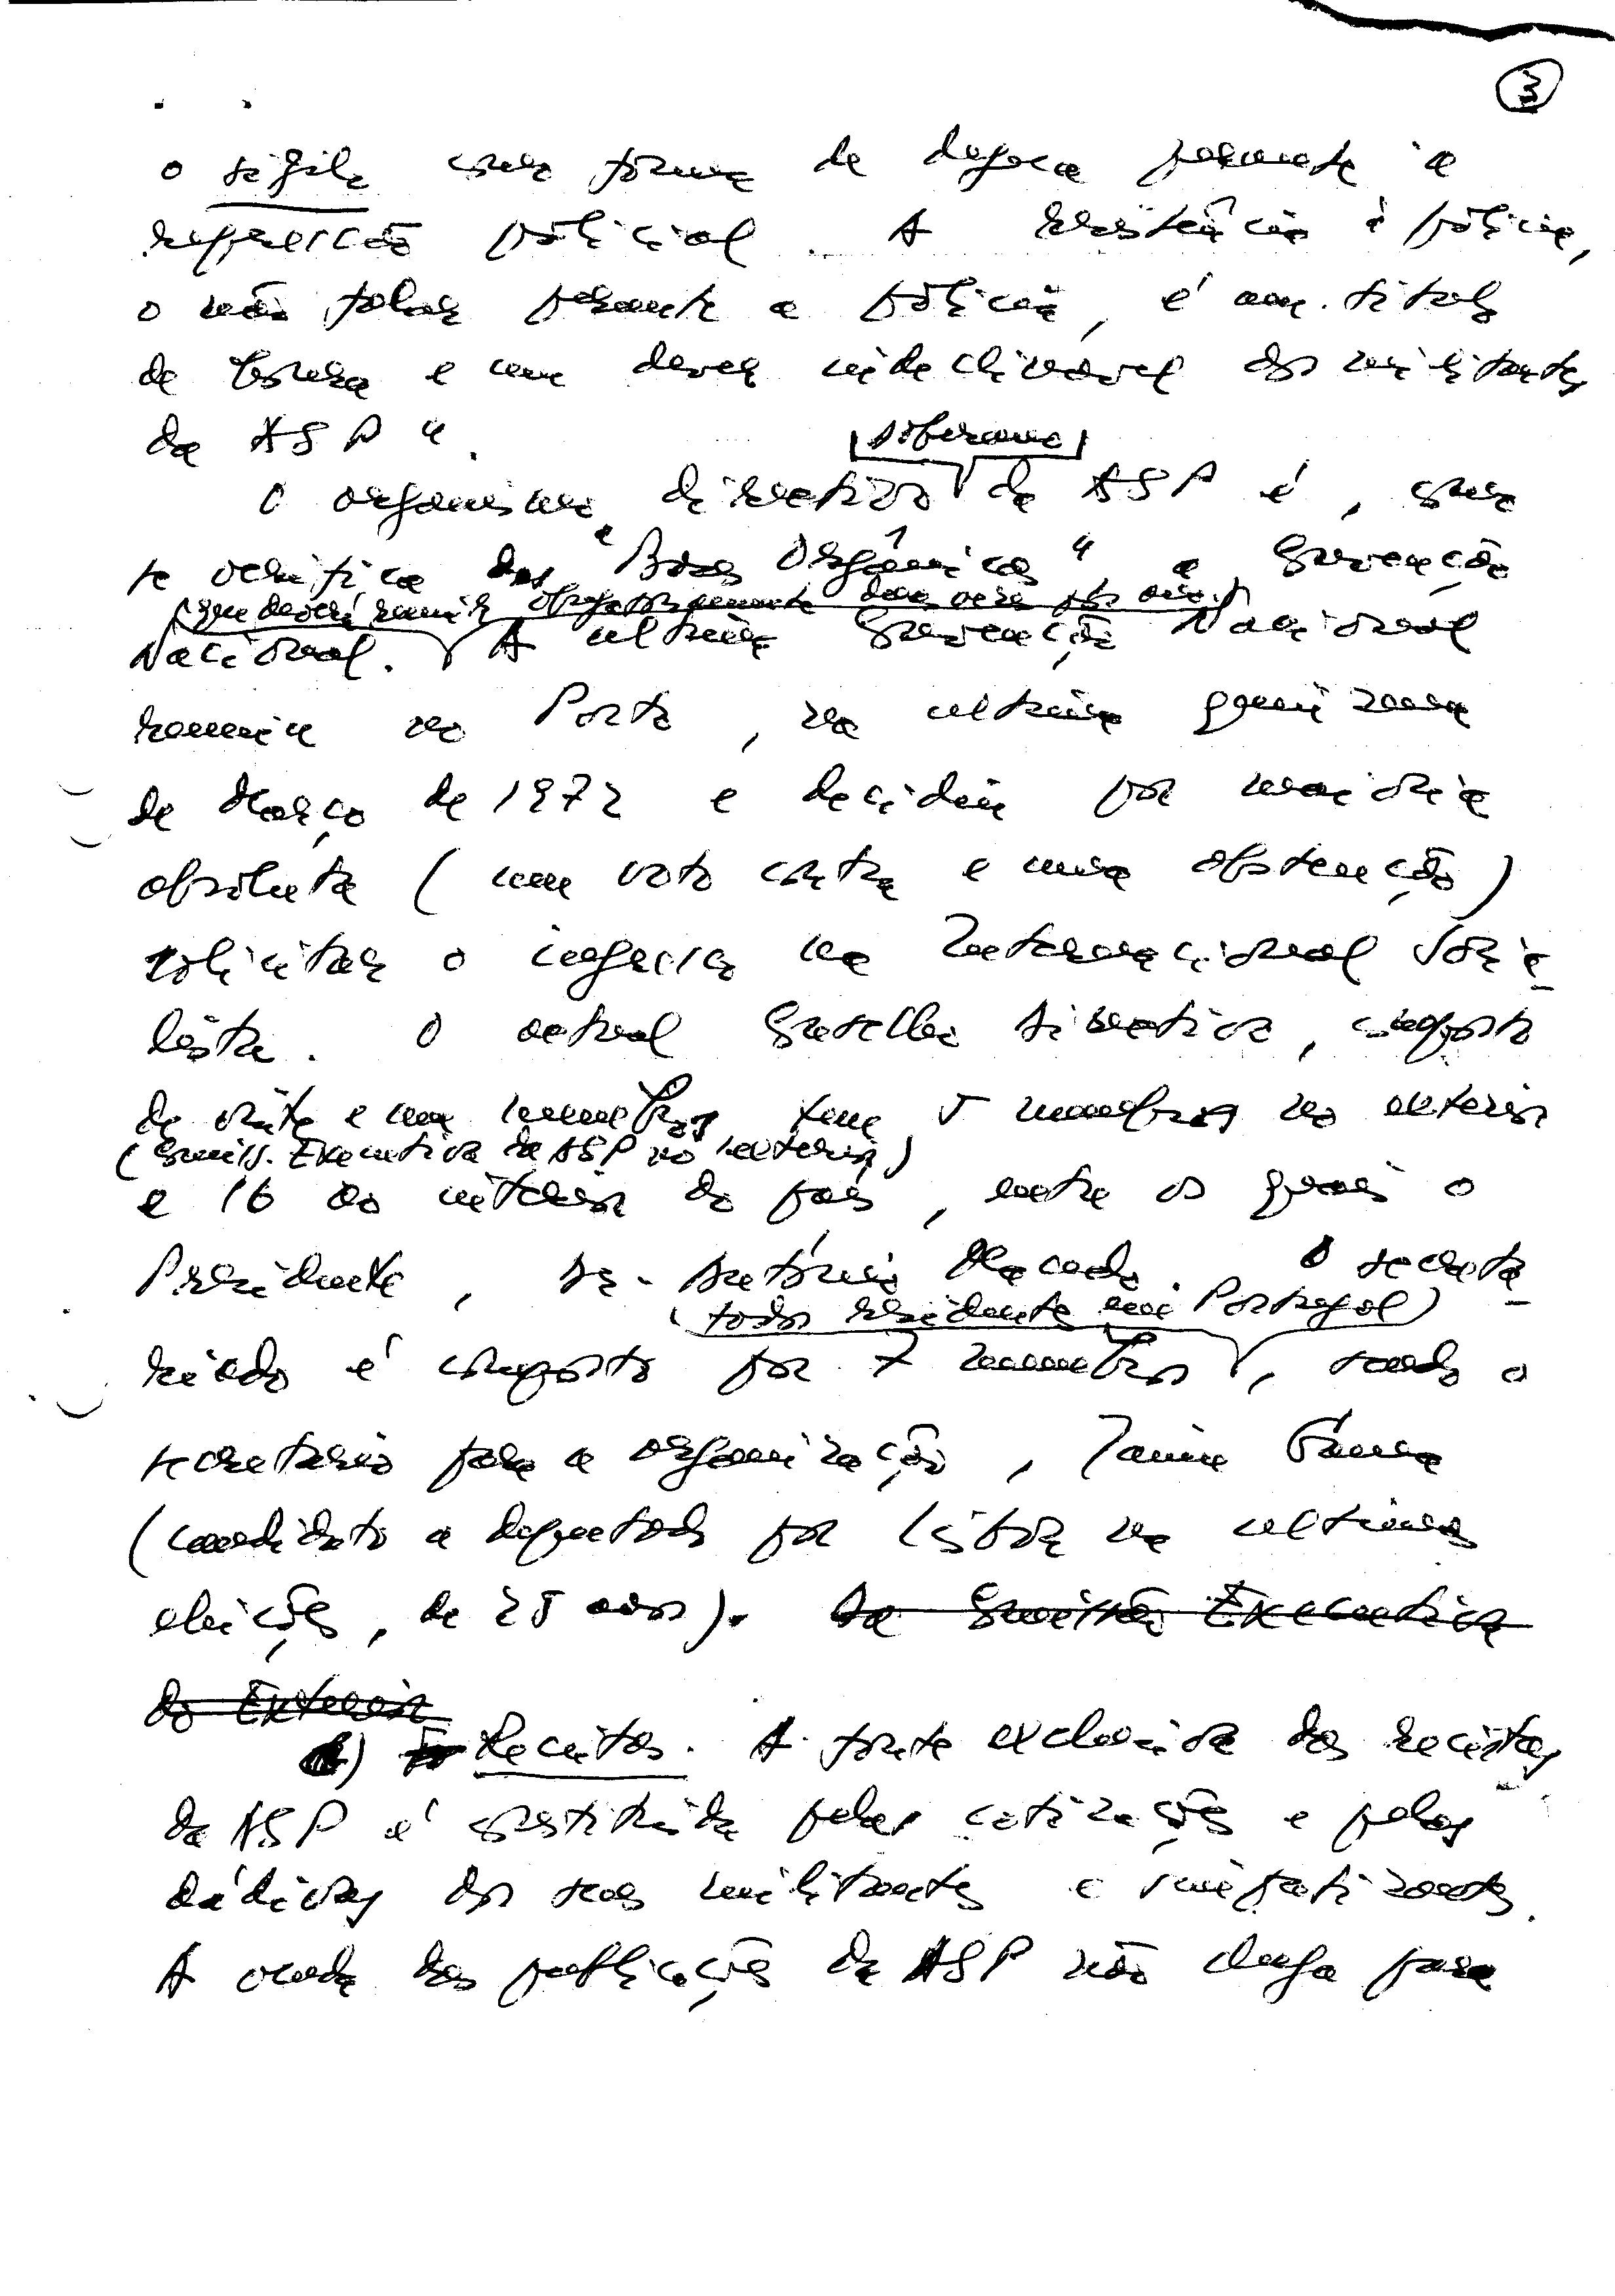 3
o sigilo como forma de defesa perante a
repressão policial. A resistência à polícia,
o não falar perante a polícia, é um título
de honra e um dever indeclinável dos militantes
da ASP".
soberano
O organismo directivo da ASP é, como
se verifica das "Bases Orgânicas" a Convenção
(que deverá reunir obrigatoriamente duas vezes por ano)
Nacional. A última Convenção Nacional
reuniu no Porto, na última quinzena
de Março de 1972 e decidiu por maioria
absoluta (um voto contra e uma abstenção)
solicitar o ingresso na Internacional Socia-
lista. O actual Conselho Directivo, composto
de vinte e um membros, tem 5 membros no exterior
(Comiss. Executiva da ASP no exterior)
e 16 no interior do país, entre os quais o
Presidente, Dr. António Macedo. O secreta-
(todos residentes em Portugal)
riado é composto por 7 membros, sendo o
secretário para a organização, Jaime Gama
(candidato a deputado por Lisboa nas últimas
eleições, de 25 anos). Da Comissão Executiva
do Exterior
) Receitas. A fonte exclusiva das receitas
da ASP é constituída pelas cotizações e pelas
dádivas dos seus militantes e simpatizantes.
A venda das publicações da ASP não chega para